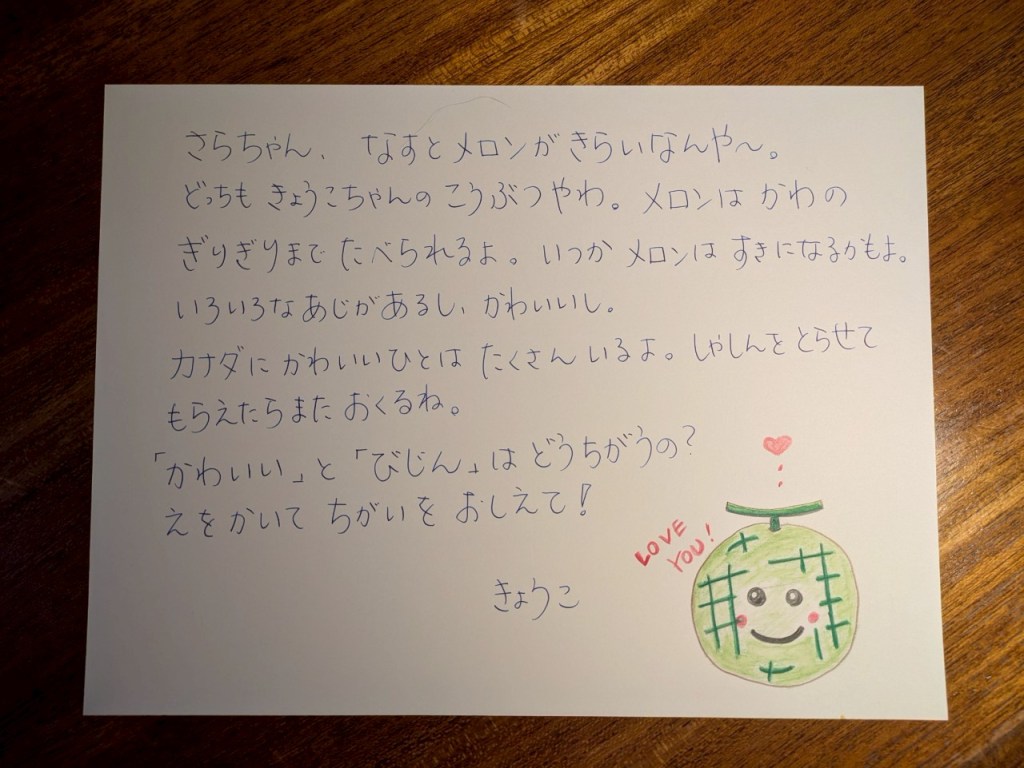 さらちゃん、 なすとメロンがきらいなんや〜。
どっちも きょうこちゃんの こうぶつやわ。メロンは かわの
ぎりぎりまで たべられるよ。 いつか メロンは すきになるかもよ。
いろいろな あじがあるし、かわいいし。
カナダに かわいいひとは たくさん いるよ。しゃしんを とらせて
もらえたら また おくるね。
「かわいい」と「びじん」は どうちがうの?
えを かいて ちがいを おしえて!
きょうこ
LOVE
YOU!